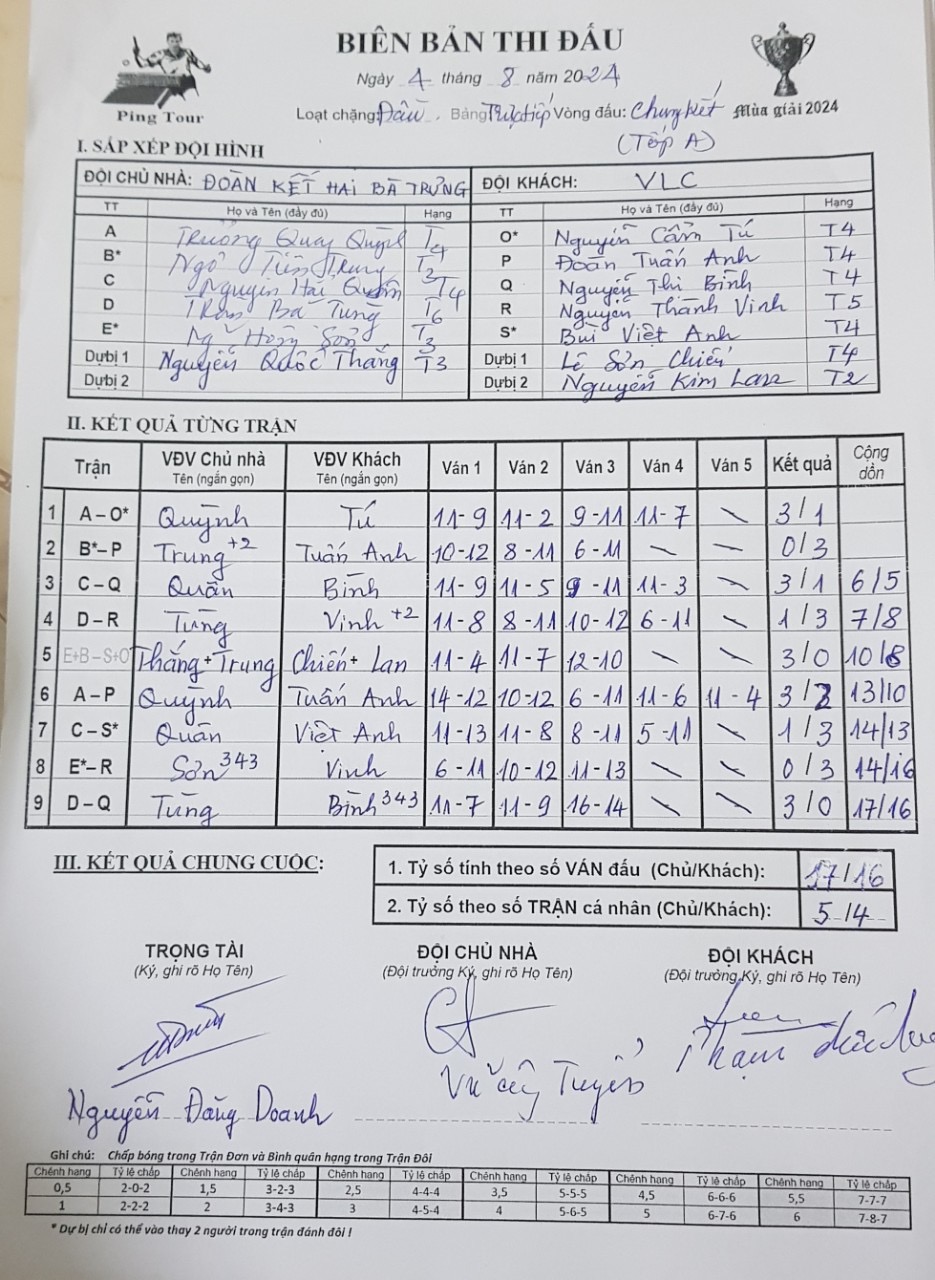 BIÊN BẢN THI ĐẤU
Ping Tour
Ngày 4 tháng 8 năm 2024
Loạt chặng: Đấu. Bảng Trực tiếp Vòng đấu: Chung kết Mùa giải 2024
(Tốp A)
I. SẮP XẾP ĐỘI HÌNH
ĐỘI CHỦ NHÀ: ĐOÀN KẾT HAI BÀ TRƯNG ĐỘI KHÁCH: VLC
TT Họ và Tên (đầy đủ) Hạng TT Họ và Tên (đầy đủ) Hạng
A Trương Quang Quỳnh T4 O* Nguyễn Cẩm Tú T4
B* Ngô Tiến Trung T3 P Đoàn Tuấn Anh T4
C Nguyễn Hải Quân T4 Q Nguyễn Thi Bình T4
D Trần Bá Tùng T6 R Nguyễn Thành Vinh T5
E* Ng Hồng Sơn T3 S* Bùi Việt Anh T4
Dựbị 1 Nguyễn Quốc Thắng T3 Dựbị 1 Lê Sơn Chiến T4
Dựbị 2 Dựbị 2 Nguyễn Kim Lan T2
II. KẾT QUẢ TỪNG TRẬN
Trận VĐV Chủ nhà VĐV Khách Ván 1 Ván 2 Ván 3 Ván 4 Ván 5 Kết quả Cộng dồn
Tên (ngắn gọn) Tên (ngắn gọn)
1 A – O* Quỳnh Tú 11-9 11-2 9-11 11-7 \ 3/1
2 B*– P Trung +2 Tuấn Anh 10-12 8-11 6-11 \ \ 0/3
3 C – Q Quân Bình 11-9 11-5 9-11 11-3 \ 3/1 6/5
4 D – R Tùng Vinh +2 11-8 8-11 10-12 6-11 \ 1/3 7/8
5 E+B – S+O Thắng + Trung Chiến + Lan 11-4 11-7 12-10 \ \ 3/0 10/8
6 A – P Quỳnh Tuấn Anh 14-12 10-12 6-11 11-6 11-4 3/2 13/10
7 C – S* Quân Việt Anh 11-13 11-8 8-11 5-11 \ 1/3 14/13
8 E*– R Sơn 343 Vinh 6-11 10-12 11-13 \ \ 0/3 14/16
9 D – Q Tùng Bình 343 11-7 11-9 16-14 \ \ 3/0 17/16
III. KẾT QUẢ CHUNG CUỘC:
1. Tỷ số tính theo số VÁN đấu (Chủ/Khách): 17/16
2. Tỷ số theo số TRẬN cá nhân (Chủ/Khách): 5/4
TRỌNG TÀI ĐỘI CHỦ NHÀ ĐỘI KHÁCH
(Ký, ghi rõ Họ Tên) (Đội trưởng Ký, ghi rõ Họ Tên) (Đội trưởng Ký, ghi rõ Họ Tên)
Nguyễn Đăng Doanh Vũ Tuyến Phạm đức
Ghi chú: Chấp bóng trong Trận Đơn và Bình quân hạng trong Trận Đôi
Chênh hạng Tỷ lệ chấp Chênh hạng Tỷ lệ chấp Chênh hạng Tỷ lệ chấp Chênh hạng Tỷ lệ chấp Chênh hạng Tỷ lệ chấp Chênh hạng Tỷ lệ chấp
0,5 2-0-2 1,5 3-2-3 2,5 4-4-4 3,5 5-5-5 4,5 6-6-6 5,5 7-7-7
1 2-2-2 2 3-4-3 3 4-5-4 4 5-6-5 5 6-7-6 6 7-8-7
* Dự bị chỉ có thể vào thay 2 người trong trận đánh đôi !